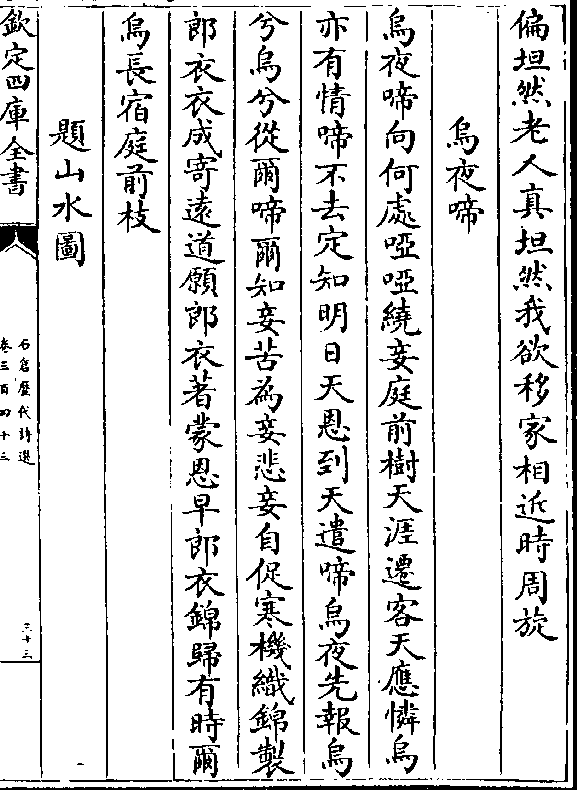 偏坦然老人真坦然我欲移家相近時周旋
烏夜啼
烏夜啼向何處啞啞繞妾庭前樹天涯遷客天應憐烏
亦有情啼不去定知明日天恩到天遣啼烏夜先報烏
兮烏兮從爾啼爾知妾苦為妾悲妾自促寒機織錦製
郎衣衣成寄遠道願郎衣著蒙恩早郎衣錦歸有時爾
烏長宿庭前枝
題山水圖
欽定四庫全書
石倉歷代詩選
卷三百四十三
三十三